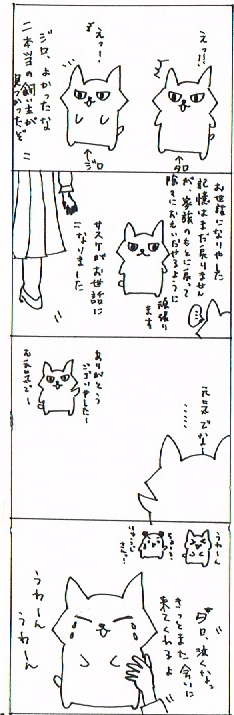 えっ!!
↑タロ
えっー!
↑ジロ
ジロ、よかったな
本当の飼い主が
見つかったぞ
お世話になりやした
記憶はまだ戻りません
が、家族のもとに戻って
除々におもいだせるように
頑張り
ます
サスケがお世話に
なりました
元気でなー
……
ありがとう
ございやした〜
お元気で〜
タロ、泣くなよ
きっとまた会いに
来てくれるよ
うわーん
うわーん
うわーん